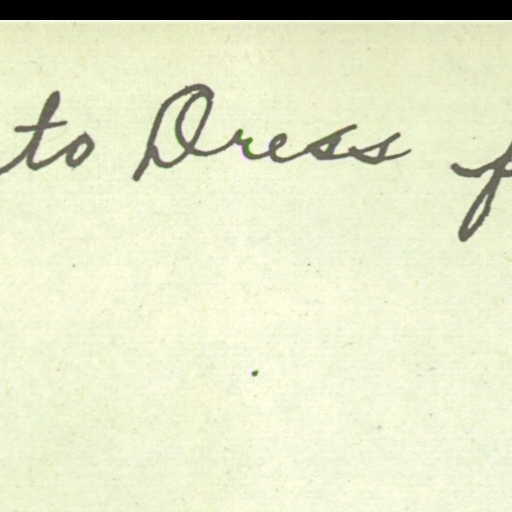 to Dress